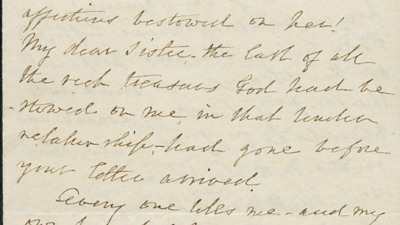 affections bestowed on her!
My dear Sister - the last of all
the rich treasures God had be
-stowed on me, in that tender
relation ship, - had gone before
your letter arrived.
Every one tells me - and my
own